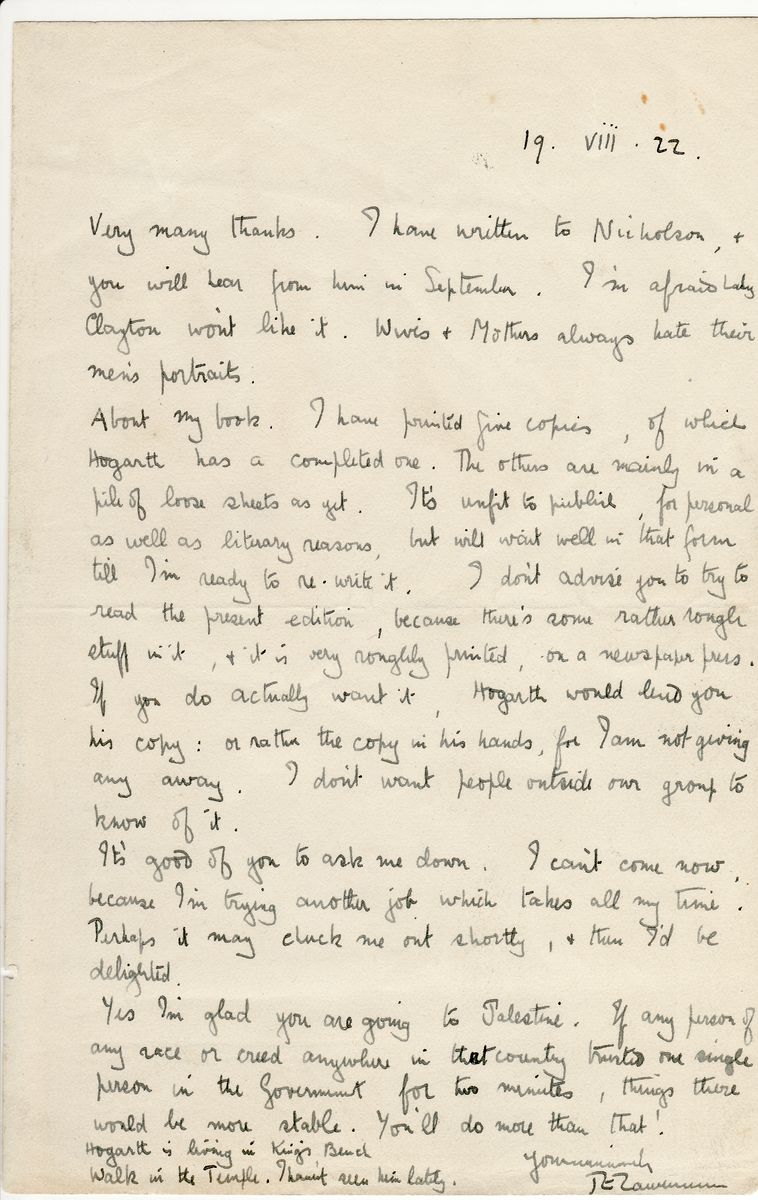 19. VIII. 22.
Very many thanks. I have written to Nicholson, &
you will hear from him in September. I'm afraid Lady
Clayton won't like it. Wives & Mothers always hate their
men's portraits.
About my book. I have printed five copies, of which
Hogarth has a completed one. The others are mainly in a
pile of loose sheets as yet. It's unfit to publish, for personal
as well as literary reasons, but will wait well in that form
till I'm ready to re-write it. I don't advise you to try to
read the present edition, because there's some rather rough
stuff in it, & it is very roughly printed, on a newspaper press.
If you do actually want it, Hogarth would lend you
his copy: or rather the copy in his hands, for I am not giving
any away. I don't want people outside our group to
know of it.
It's good of you to ask me down. I can't come now,
because I'm trying another job which takes all my time.
Perhaps it may chuck me out shortly, & then I'd be
delighted.
Yes I'm glad you are going to Palestine. If any person of
any race or creed anywhere in that country trusted one single
person in the Government for two minutes, things there
would be more stable. You'll do more than that!
Hogarth is living in King's Bench
Walk in the Temple. I haven't seen him lately.
TELawrence